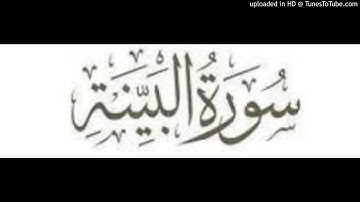 uploaded in HD @ TunesToTube.com
سُورَةُ البَيِّنَةِ